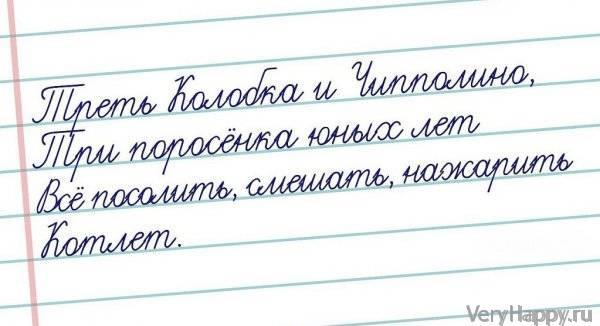 Треть Колобка и Чипполино,
Три поросёнка юных лет
Всё посолить, смешать, нажарить
Котлет.
VeryHappy.ru